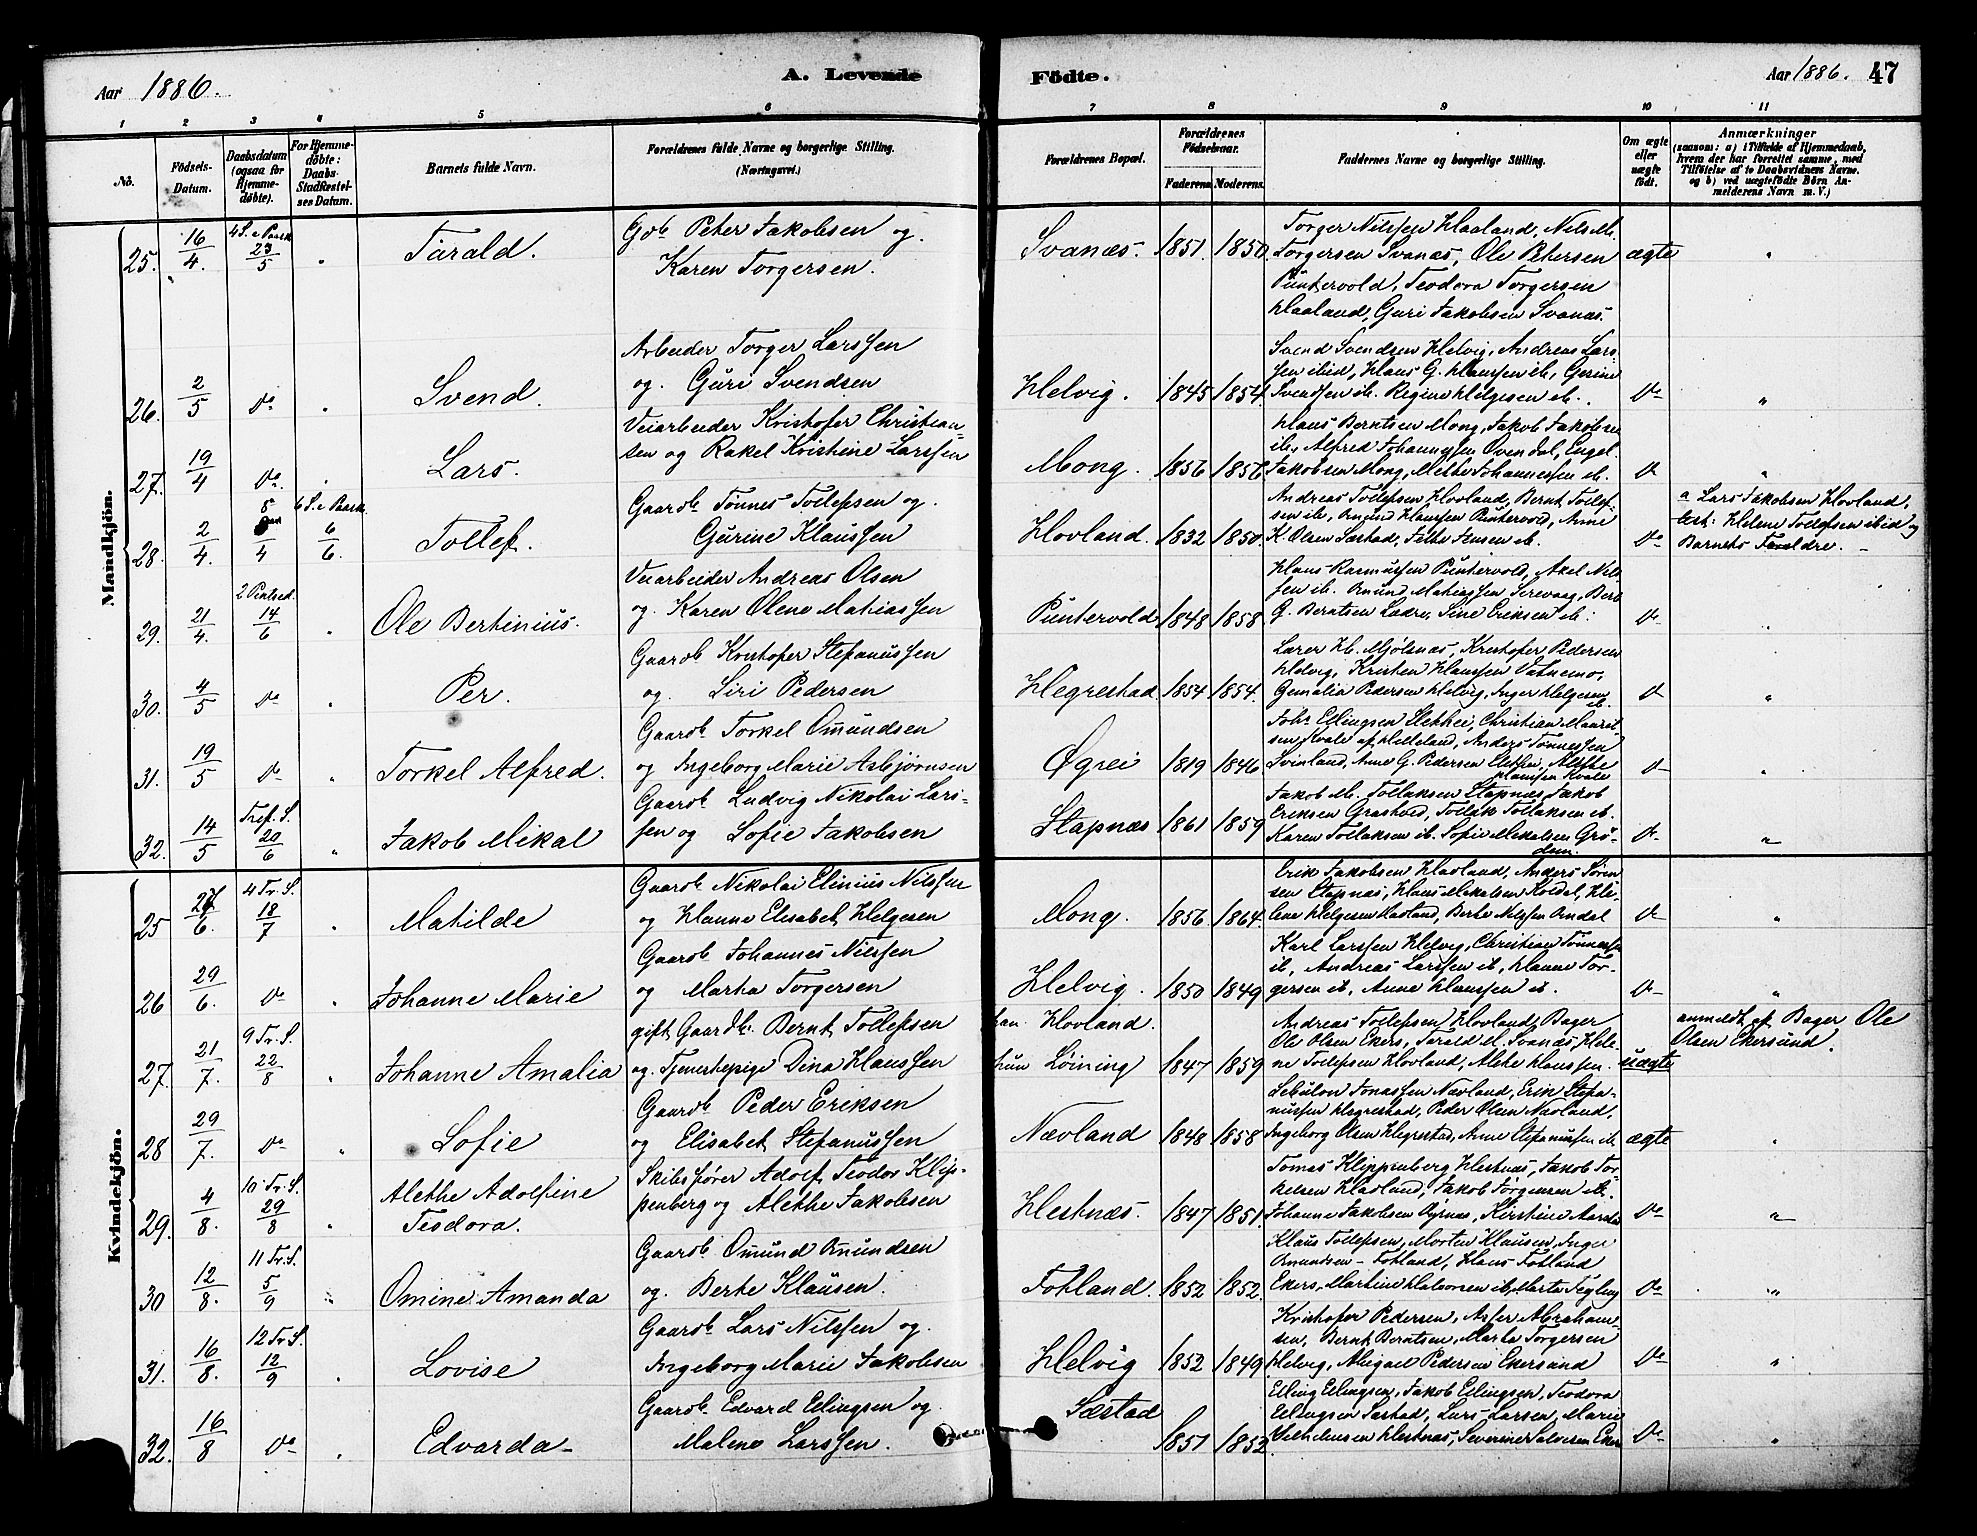 Aar 1886.
A. Levende
Fødte.
Aar 1886.
47
1 2 3 4 5 6 7 8 9 10 11
No.
Fødsels-
Datum.
Daabsdatum
(ogsaa for
Hjemme-
døbte).
For Hjemme-
døbte:
Daabs-
Stadfæstel-
ses Datum.
Barnets fulde Navn.
Forældrenes fulde Navne og borgerlige Stilling.
(Næringsvei.)
Forældrenes Bopæl.
Forældrenes
Fødselsaar.
Faderens. Moderens.
Faddernes Navne og borgerlige Stilling.
Om ægte
eller
uægte
født.
Anmærkninger
(saasom: a) i Tilfælde af Hjemmedaab,
hvem der har forrettet samme, med
Tilføielse af to Daabsvidners Navne,
og b) ved uægtefødte Børn An-
melderens Navn m. V.)
Mandkjön.
25. 16/4. 4 S. e Paask 23/5 " Tarald.
Gvb Peter Jakobsen og
Karen Torgersen.
Svanæs. 1851. 1850.
Torger Nilssen Haaland, Nils M.
Torgersen Svanæs, Ole Petersen
Puntervold, Teodora Torgersen
Haaland, Guri Jakobsen Svanæs.
ægte "
26. 2/5 do " Svend.
Arbeider Torger Larssen
og Guri Svendsen
Helvig. 1845 1854.
Svend Svendsen Helvig, Andreas Lars-
sen ibid, Hans G. Hanssen ib, Gesine
Svendsen ib. Regine Helgesen ib.
do "
27. 19/4 do " Lars.
Veiarbeider Kristofer Christian-
sen og Rakel Kristine Larssen
Mong. 1856 1856.
Hans Berntsen Mong, Jakob Jakobsen
ib, Alfred Johannssen Ovendal, Engel
Jakobsen Mong, Mette Johannessen ib.
do "
28. 2/4. 8/4 6 S. e Paask 6/6. Tollef.
Gaardb Tönnes Tollefsen og
Gurine Klaussen
Hovland. 1832 1850.
Andreas Tollefsen Hovland, Bernt Tollef-
sen ib, Omund Hanssen Puntervold, Anne
K. Olsen Sæstad, Jensen ib.
do
a Lars Jakobsen Hovland,
test: Helene Tollefsen ibid og
Barnets Forældre.
29. 21/4. 2 Pintsed. 14/6 " Ole Bertinius.
Veiarbeider Andreas Olsen
og Karen Olene Mathiassen
Puntervold 1848 1858.
Hans Rasmussen Puntervold, Axel Nils-
sen ib. Omund Mathiassen Sirevaag, Bert
G. Berntsen Ladre, Sine Eriksen ib.
do "
30. 4/5 do " Per.
Gaardb Kristofer Stefanussen
og Siri Pedersen
Hegrestad. 1854. 1854.
Lærer H. Mjølsnæs, Kristofer Pedersen
Helvig, Kristen Hanssen Vatnemo,
Gemalia Pedersen Helvig, Inger Helgesen
ib.
do "
31. 19/5 do " Torkel Alfred.
Gaardb Torkel Omundsen
og Ingeborg Marie Asbjørnsen
Øgrei 1819 1846
Johs Edlingsen Sletthei, Christian Maurit-
sen Kvale af Hetteland, Anders Tönnessen
Svinland, Anne G. Pedersen Eletsen, Alethe
Hanssen Kvale
do "
32. 14/5 Tref. S. 20/6 " Jakob Mikal
Gaardb Ludvig Nikolai Lars-
sen og Sofie Jakobsen
Stapnæs 1861 1859
Jakob M. Tollaksen Stapnæs, Jakob
Eriksen Grastveid, Tollak Tollaksen ib.
Karen Tollaksen ib. Sofie Mikalsen Grø-
dem.
do "
Kvindekjön.
25 27/6. 4 Tr. S. 18/7 " Matilde
Gaardb Nikolai Elinius Nilssen
og Hanne Elisabet Helgesen
Mong. 1856 1864.
Erik Jakobsen Haaland, Anders Søren-
sen Stapnæs, Hans Mikalsen Koldal, He-
lene Helgesen Haaland, Berte Nilssen Omdal
do "
26 29/6. do " Johanne Marie
Gaardb Johannes Nilssen
og Marta Torgersen
Helvig. 1850 1849
Karl Larssen Helvig, Christian Tönnessen
ib, Andreas Larssen ib, Hanne Tor-
gersen ib, Anne Hanssen ib.
do "
27. 21/7. 9 Tr. S. 22/8 " Johanne Amalia
gift Gaardb. Bernt Tollefsen
og Tjenestepige Dina Klaussen
han Hovland.
hun Løining 1847 1859
Andreas Tollefsen Hovland, Bager
Ole Olsen Ekers., Tarald M. Svanæs, Hele-
ne Tollefsen Hovland, Alethe Klaussen.
uægte
anmeldt af Bager Ole
Olsen Ekersund.
28 29/7. do " Sofie
Gaardb Peder Eriksen
og Elisabet Stefanussen
Nævland 1848 1858
Sebulon Jonassen Nævland, Erik Stefa-
nussen Hegrestad, Peder Olsen Nævland,
Ingeborg Olsen Hegrestad, Anne Stefanussen ib.
ægte "
29. 4/8. 10 Tr. S. 29/8 " Alethe Adolfine
Teodora.
Skibsfører Adolf Teodor Klip-
penberg og Alethe Jakobsen
Hestnæs. 1847 1851.
Tomas Klippenberg Hestnæs, Jakob Tor-
kelsen Haaland, Jakob Jørgensen ib.
Johanne Jakobsen Kirstine Aarstad
do "
30 12/8. 11 Tr. S. 5/9 " Omine Amanda
Gaardb Omund Omundsen
og Berte Klausen.
Fotland. 1852 1852.
Klaus Tollefsen, Morten Klausen, Inger
Omundsen - Fotland, Hans Fotland
Ekers, Martine Halvorsen ib, Marta Tegling
do "
31. 16/8. 12 Tr. S. 12/9 " Lovise
Gaardb Lars Nilssen og
Ingeborg Marie Jakobsen
Helvig 1852 1849
Kristofer Pedersen, Asser Abraham-
sen, Bernt Berntsen, Marta Torgersen
Helvig, Abigael Pedersen Ekersund
do "
32. 16/8 do " Edvarda
Gaardb Edvard Edlingsen og
Malene Larssen.
Sæstad 1851 1852.
Edling Edlingsen, Jakob Edlingsen, Teodora
Edlingsen Sæstad, Lars Larsen, Marie
Vilhelmsen Hestnæs, Severine Salvesen Ekers
do "